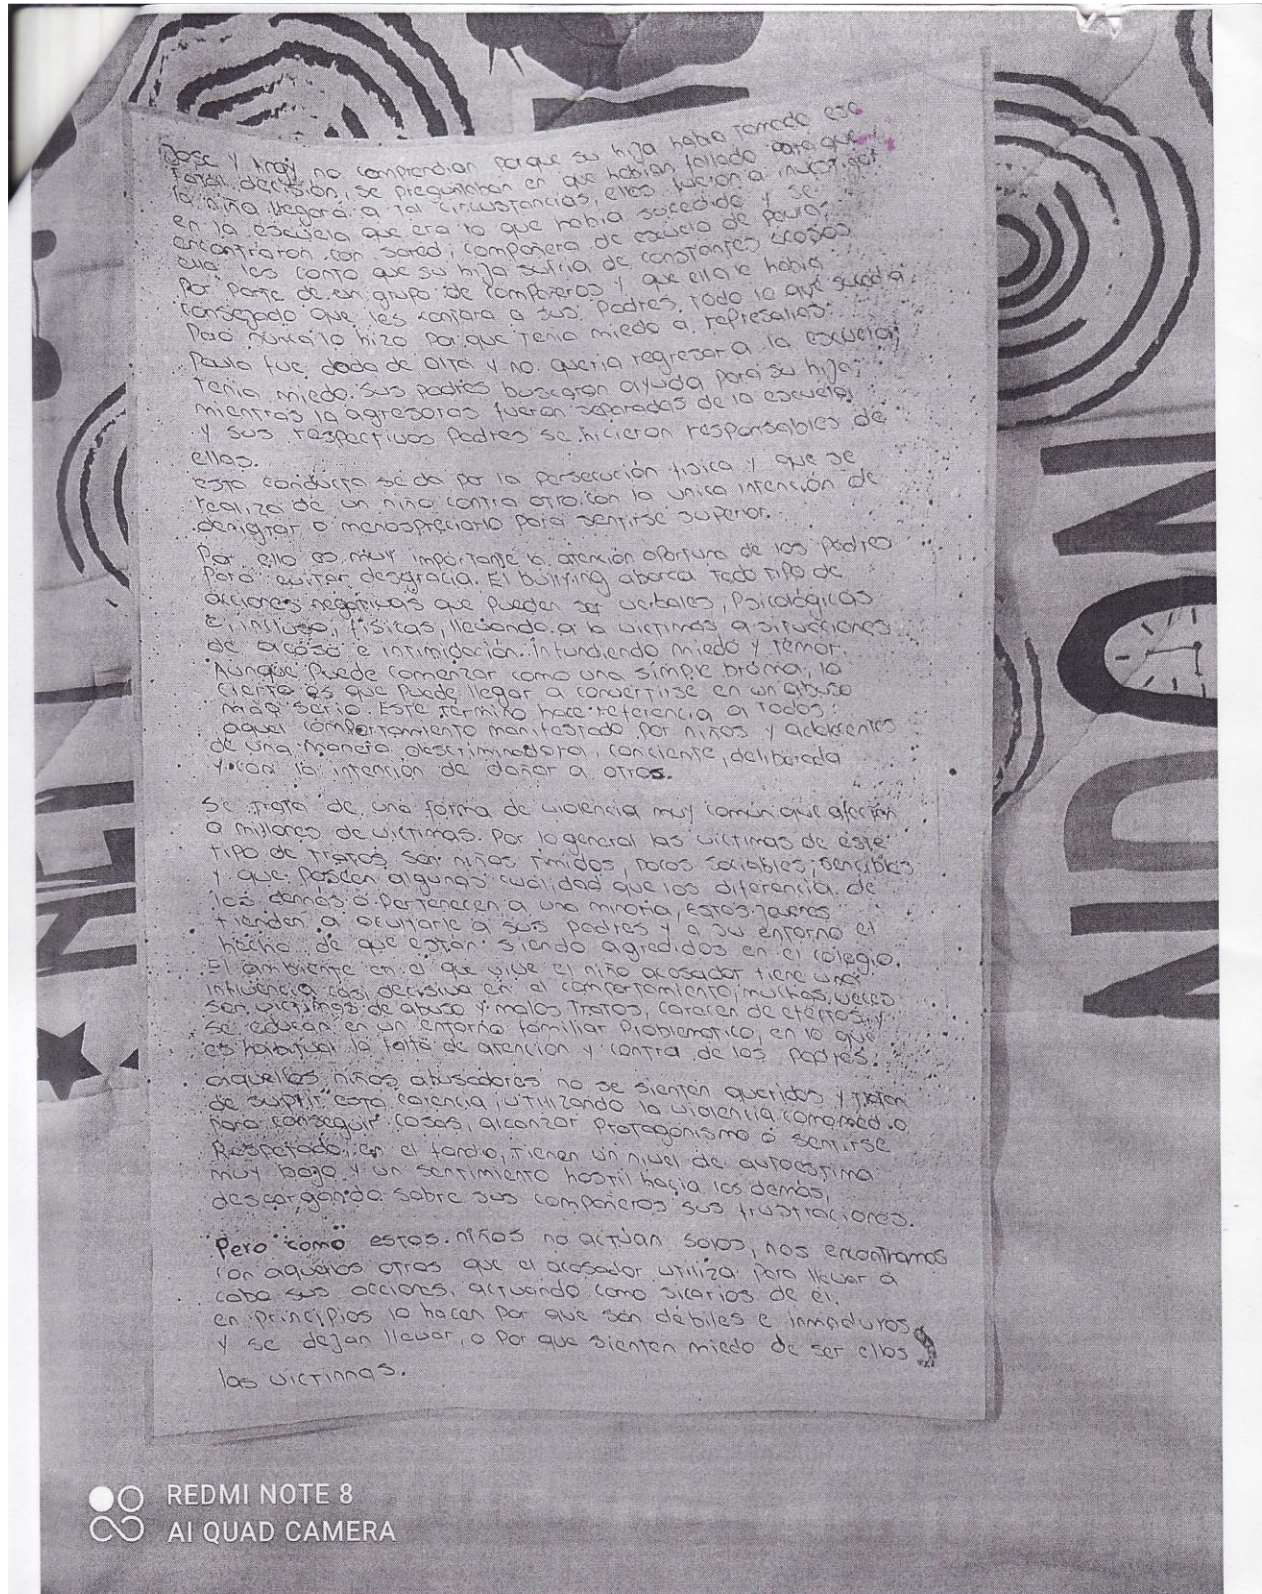 Jose y Iray no comprendian porque su hija habia tomado esa
fatal decisión, se preguntaban en que habian fallado para que
la niña llegará a tal circunstancias, ellos fueron a investigar
en la escuela que era lo que habia sucedido y se
encontraron con sared, compañera de escuela de paula,
ella les conto que su hija sufria de constantes acosos
Por parte de un grupo de compañeros y que ella le habia
consejado que les contara a sus Padres todo lo que sucedia
Pero nunca lo hizo porque tenia miedo a represalias.
Paula fue dada de alta y no queria regresar a la escuela,
tenia miedo. sus padres buscaron ayuda para su hija,
mientras la agresoras fueron separadas de la escuela
y sus respectivos Padres se hicieron responsables de
ellas.
esta conducta se da por la persecución fisica y que se
realiza de un niño contra otro con la unica intención de
denigrar o menospreciarlo para sentirse superior.
Por ello es muy importante la atención oportuna de los padres
Para evitar desgracia. El bullying abarca todo tipo de
acciones negativas que pueden ser verbales, Psicológicas
e incluso, físicas, llevando a la victimas a situaciones
de acoso e intimidación. infundiendo miedo y temor.
Aunque Puede comenzar como una simple broma, lo
cierto es que Puede llegar a convertirse en un abuso
más serio. Este término hace referencia a todos
aquel comportamiento manifestado por niños y adolecentes
de una manera descriminadora, conciente, deliberada
y con la intención de dañar a otros.
Se trata de una forma de violencia muy común que afectan
a millones de victimas. Por lo general las victimas de este
tipo de tratos son niños timidos, pocos sociables, sencibles
y que poseen algunas cualidad que los diferencia de
los demás o pertenecen a una minoria, Estos jovenes
tienden a ocultarle a sus padres y a su entorno el
hecho de que están siendo agredidos en el colegio.
El ambiente en el que vive el niño acosador tiene una
influencia casi decisiva en el comportamiento, muchas veces
son victimas de abuso y malos tratos, carecen de efectos, y
se educan en un entorno familiar Problematico, en lo que
es habitual la falta de atención y contra de los padres.
aquellos niños abusadores no se sienten queridos y tratan
de suplir esta carencia, utilizando la violencia como medio
para conseguir cosas, alcanzar protagonismo o sentirse
Respetado, en el fondo, tienen un nivel de autoestima
muy bajo y un sentimiento hostil hacia los demás,
descargando sobre sus compañeros sus frustraciones.
Pero como estos niños no actúan solos, nos encontramos
con aquellos otros que el acosador utiliza para llevar a
cabo sus acciones, actuando como sicarios de él.
en principios lo hacen por que son débiles e inmaduros
y se dejan llevar, o por que sienten miedo de ser ellos
las victimas.
NDON
REDMI NOTE 8
AI QUAD CAMERA